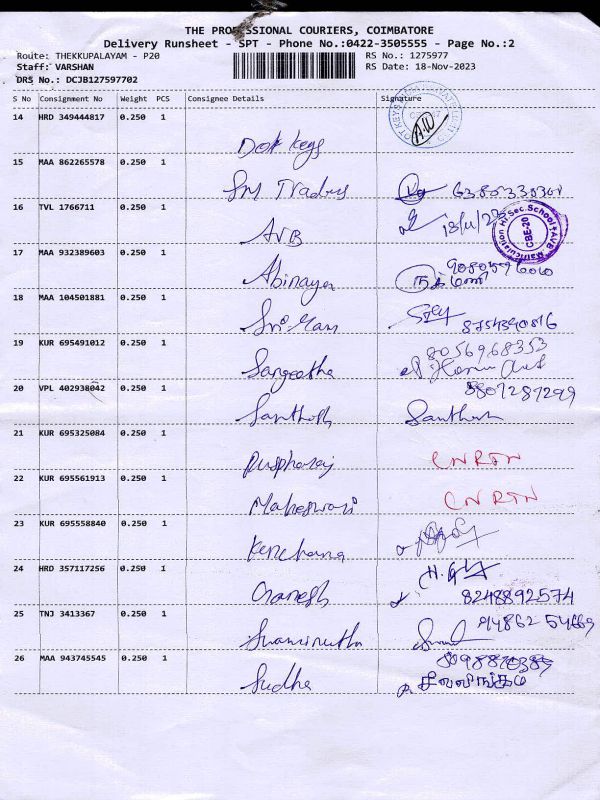 THE PROFESSIONAL COURIERS, COIMBATORE
Delivery Runsheet - SPT - Phone No.:0422-3505555 - Page No.:2
Route: THEKKUPALAYAM - P20 RS No.: 1275977
Staff: VARSHAN RS Date: 18-Nov-2023
DRS No.: DCJB127597702
S No Consignment No Weight PCS Consignee Details Signature
14 HRD 349444817 0.250 1
Dot Keys
15 MAA 862265578 0.250 1
Sri Traders
16 TVL 1766711 0.250 1
AVB
Matriculation Hr Sec. School AVB CBE-20
17 MAA 932389603 0.250 1
Abinaya
18 MAA 104501881 0.250 1
Sri Ram 8754390816
19 KUR 695491012 0.250 1
Sangeetha 8056968353
20 VPL 402938042 0.250 1
Santhosh Santhosh
21 KUR 695325084 0.250 1
Pushparaj CNRTN
22 KUR 695561913 0.250 1
Maheswari CNRTN
23 KUR 695558840 0.250 1
Kenchana
24 HRD 357117256 0.250 1
Ganesh 8248892574
25 TNJ 3413367 0.250 1
Swaminatha
26 MAA 943745545 0.250 1
Sudha சிவலிங்கம்